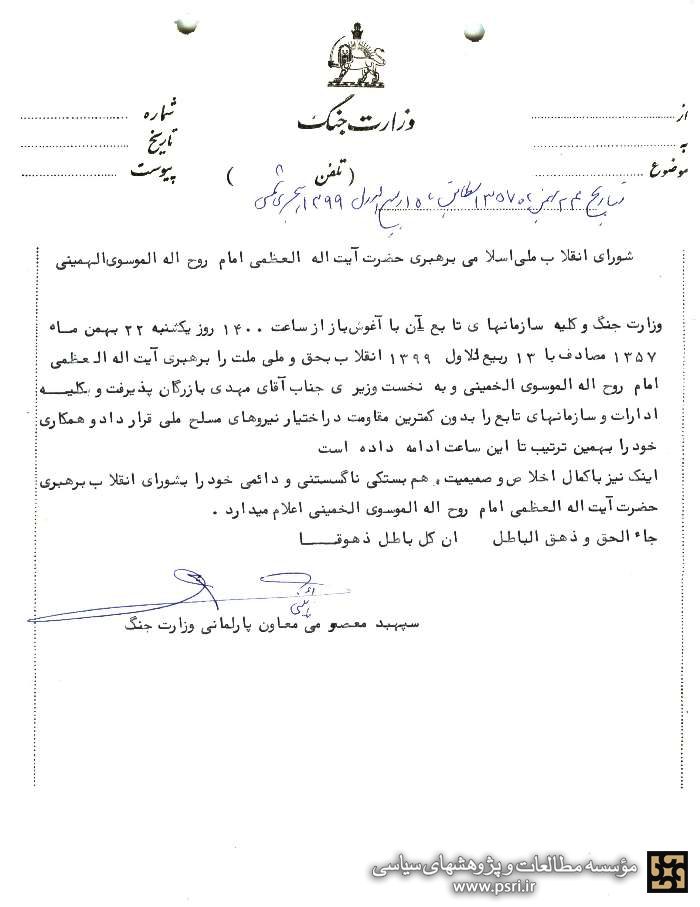 وزارت جنگ
از
شماره
به
تاریخ
موضوع
( تلفن )
پیوست
بتاریخ ۲۴ بهمن ۱۳۵۷ مطابق ۱۵ ربیع الاول ۱۳۹۹ هجری
شورای انقلاب ملی اسلامی برهبری حضرت آیت اله العظمی امام روح اله الموسوی الهمینی
وزارت جنگ و کلیه سازمانهای تابع آن با آغوش باز از ساعت ۱۴۰۰ روز یکشنبه ۲۲ بهمن ماه
۱۳۵۷ مصادف با ۱۳ ربیع للاول ۱۳۹۹ انقلاب بحق و ملی ملت را برهبری آیت اله العظمی
امام روح اله الموسوی الخمینی و به نخست وزیری جناب آقای مهدی بازرگان پذیرفت و بکلیه
ادارات و سازمانهای تابع را بدون کمترین مقاومت در اختیار نیروهای مسلح ملی قرار داد و همکاری
خود را بهمین ترتیب تا این ساعت ادامه داده است
اینک نیز با کمال اخلاص و صمیمیت، هم بستکی ناگسستنی و دائمی خود را بشورای انقلاب برهبری
حضرت آیت اله العظمی امام روح اله الموسوی الخمینی اعلام میدارد .
جاء الحق و ذهق الباطل ان کل باطل ذهوقا
سپهبد معصومی معاون پارلمانی وزارت جنگ
مؤسسه مطالعات و پژوهشهای سیاسی
www.psri.ir